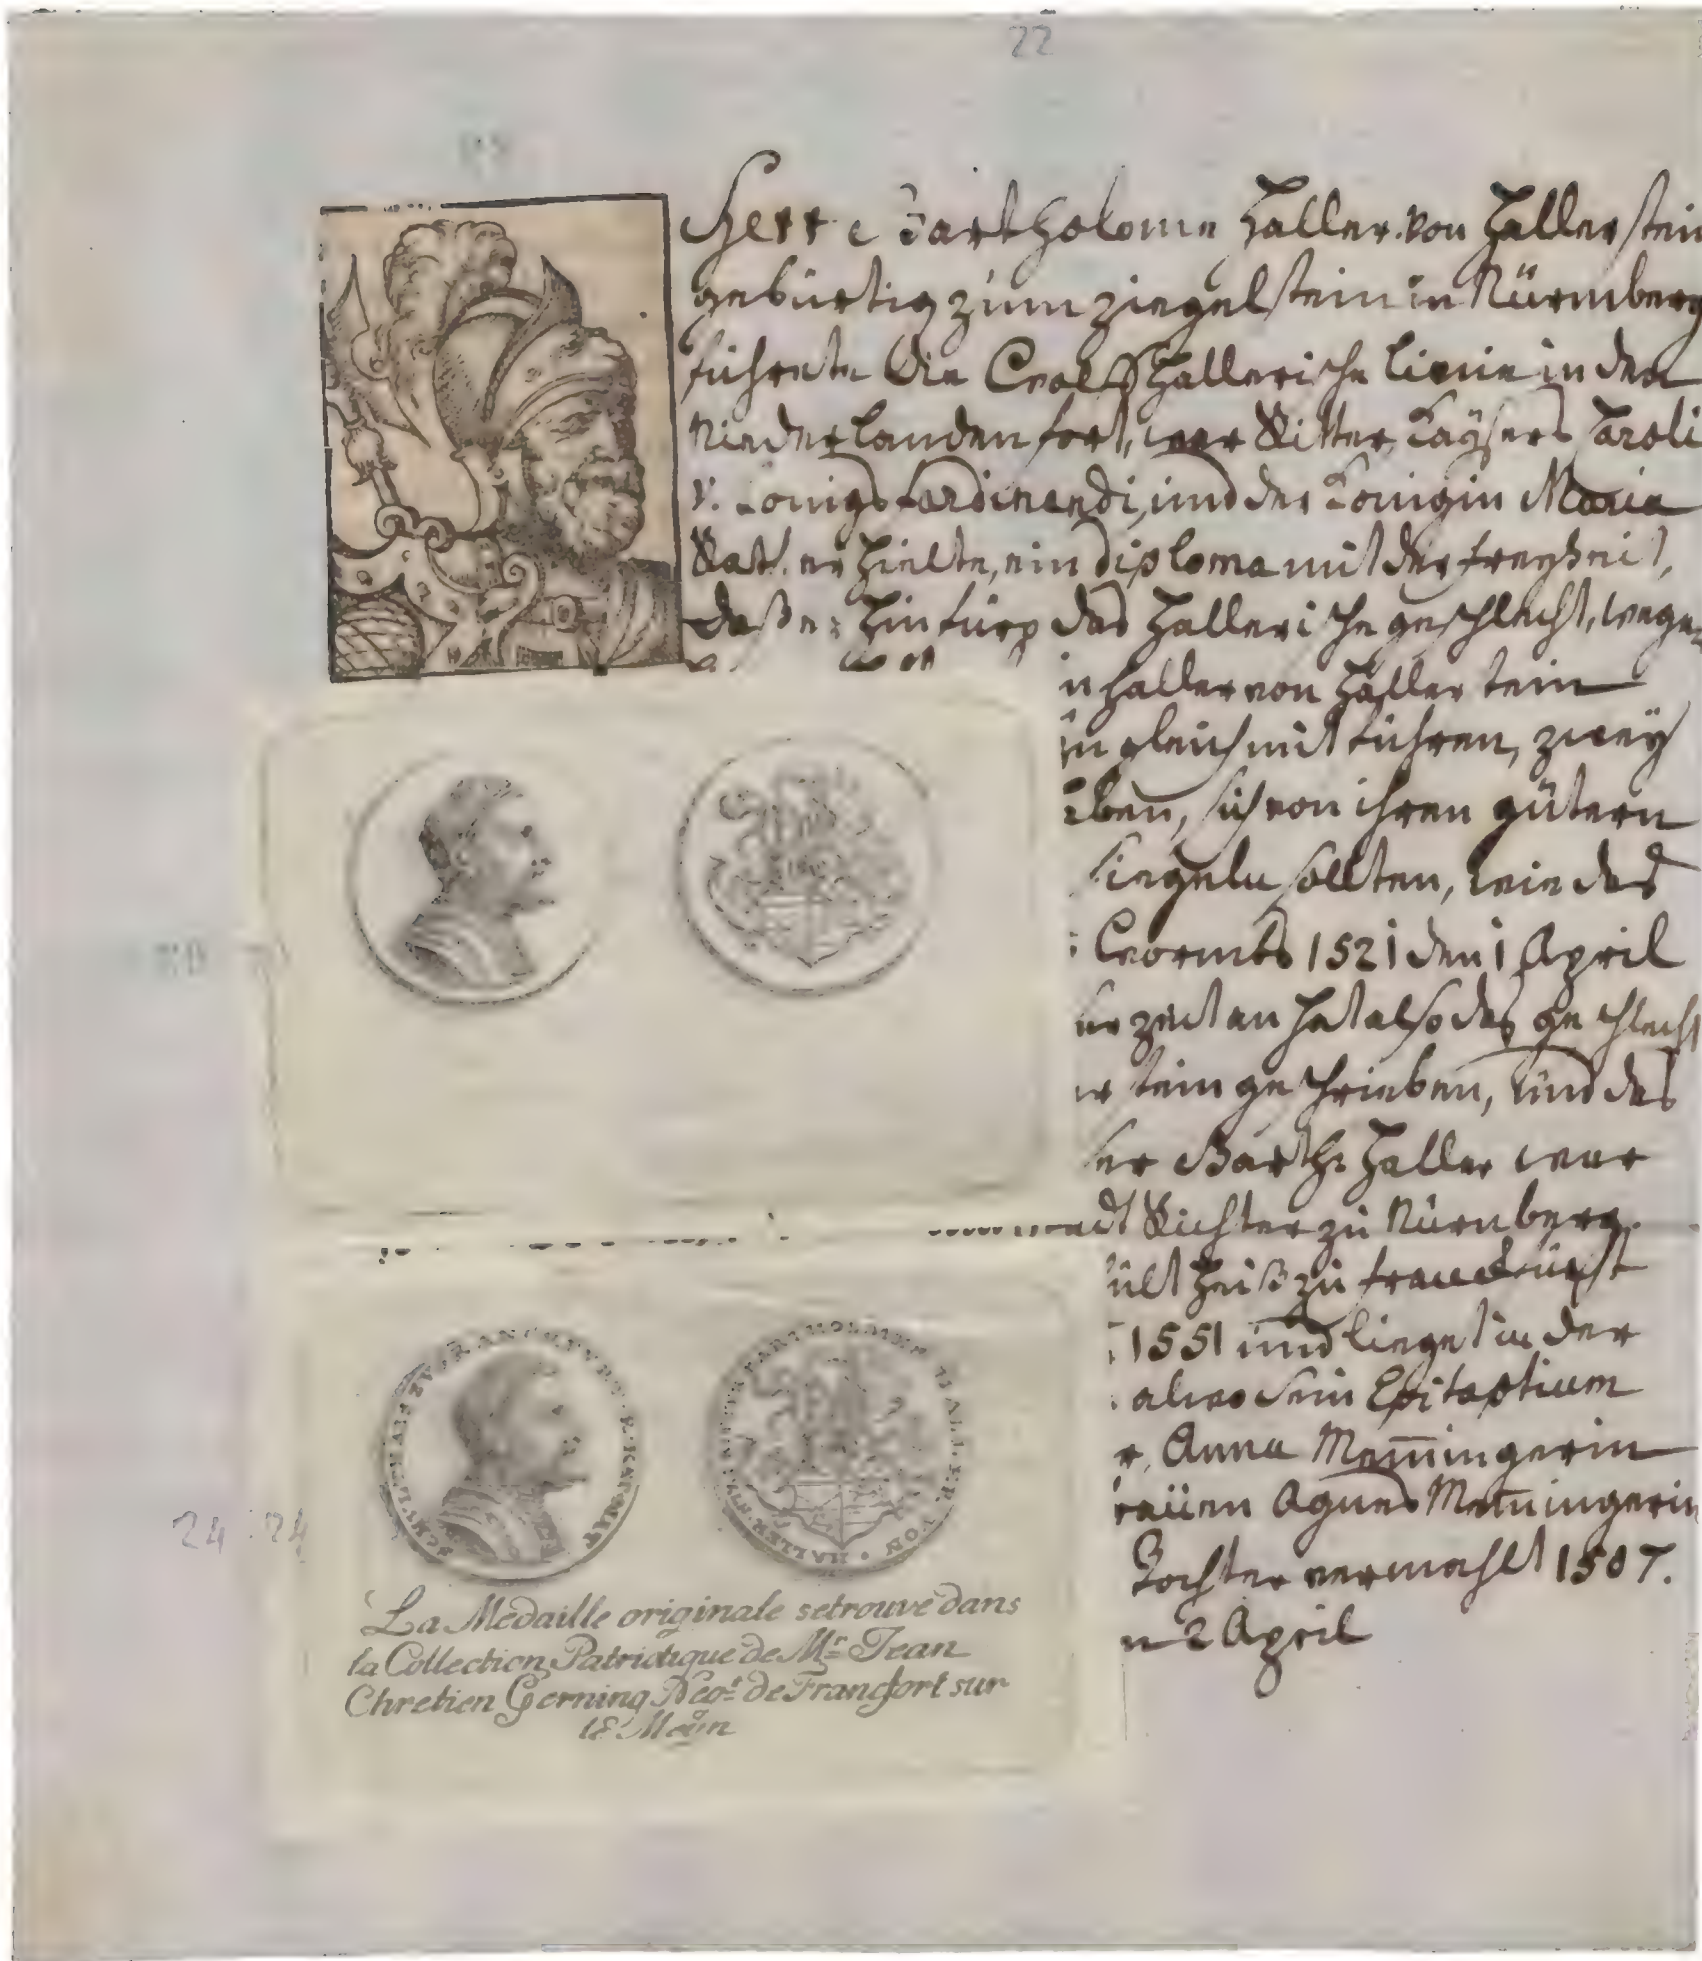 22
Herr Bartholome Haller von Hallerstein
gebürtig zum ziegelstein in Nürmberg
führete die Wolff Hallerische linie in den
Niederlanden fort, war Ritter, Kaÿsers Caroli
V. Königs Ferdinandi, und der Königin Maria
Rath. erhielte, ein diploma mit der freyheit,
daß er hinfüro das Hallerische geschlecht,
Haller von Hallerstein
gleich mit führen, zweÿ
sich von ihren gütern
siegeln sollten, wie das
Wormbs 1521 den 1 April
zeit an hat also das geschlecht
stein geschrieben, und das
er Barth: Haller war
Richter zu Nürnberg.
zu
1551 und lieget in der
sein Epitaphium
Anna Memingerin
Agnes Memingerin
Tochter vermählt 1507.
2 April
SCHVLTHAIS ZV FRANCKFVRT R KAY MAT
RITTER BARTHOLOMEW HALLER VON HALLER STEIN
24 24
La Medaille originale se trouve dans
la Collection Patriotique de Mr. Jean
Chretien Gerning Negt. de Francfort sur
le Meÿn